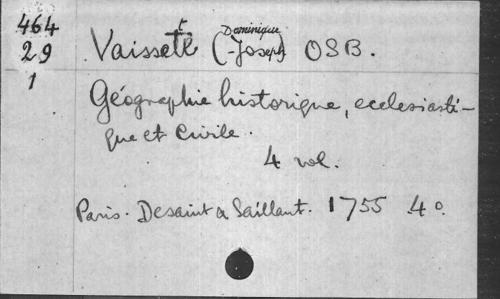 464
29
1
Vaissette (Dominique-Joseph) OSB.
Géographie historique, ecclesiasti-
que et Civile.
4 vol.
Paris. Desaint & Saillant. 1755 4o.